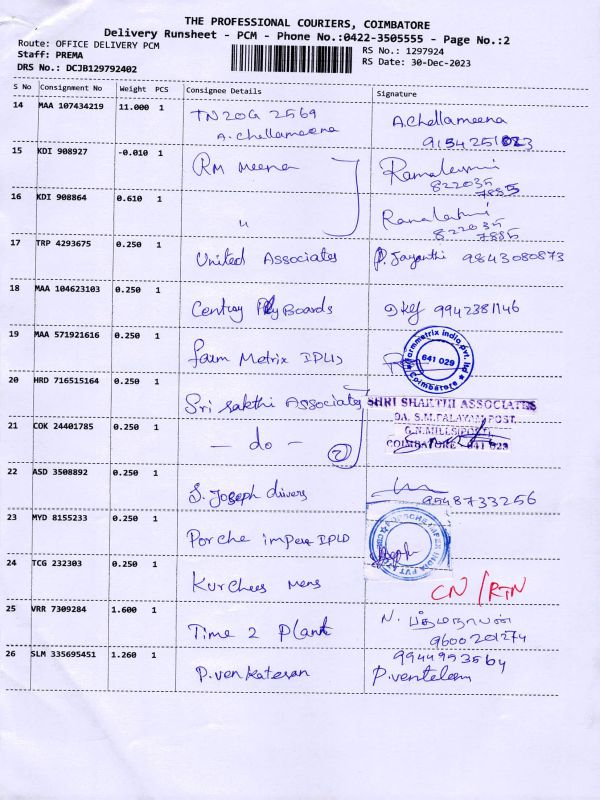 THE PROFESSIONAL COURIERS, COIMBATORE
Delivery Runsheet - PCM - Phone No.:0422-3505555 - Page No.:2
Route: OFFICE DELIVERY PCM
RS No.: 1297924
Staff: PREMA
RS Date: 30-Dec-2023
DRS No.: DCJB129792402
S No Consignment No Weight PCS Consignee Details Signature
14 MAA 107434219 11.000 1 TN20G 2569 A.Chellameena
A.Chellameena
15 KDI 908927 -0.010 1 RM Meena
822035
7885
16 KDI 908864 0.610 1 "
822035
7885
17 TRP 4293675 0.250 1 United Associates P. Jayanthi 9843080873
18 MAA 104623103 0.250 1 Century Ply Boards 9942381146
19 MAA 571921616 0.250 1 farm Metrix IPLD
farmmetrix india pvt. ltd
641 029
Coimbatore
20 HRD 716515164 0.250 1 Sri Sakthi Associates
SHRI SHAKTHI ASSOCIATES
S.M.PALAYAM POST,
G.N.MILLS(POST)
COIMBATORE 641 029
21 COK 24401785 0.250 1 - do - 2
22 ASD 3508892 0.250 1 S. Joseph drivers 9548733256
23 MYD 8155233 0.250 1 Porche impex IPLD
24 TCG 232303 0.250 1 Kurchees Mens CN/RTN
25 VRR 7309284 1.600 1 Time 2 Plant N.
9600201274
26 SLM 335695451 1.260 1 P.venkatesan 9944953564